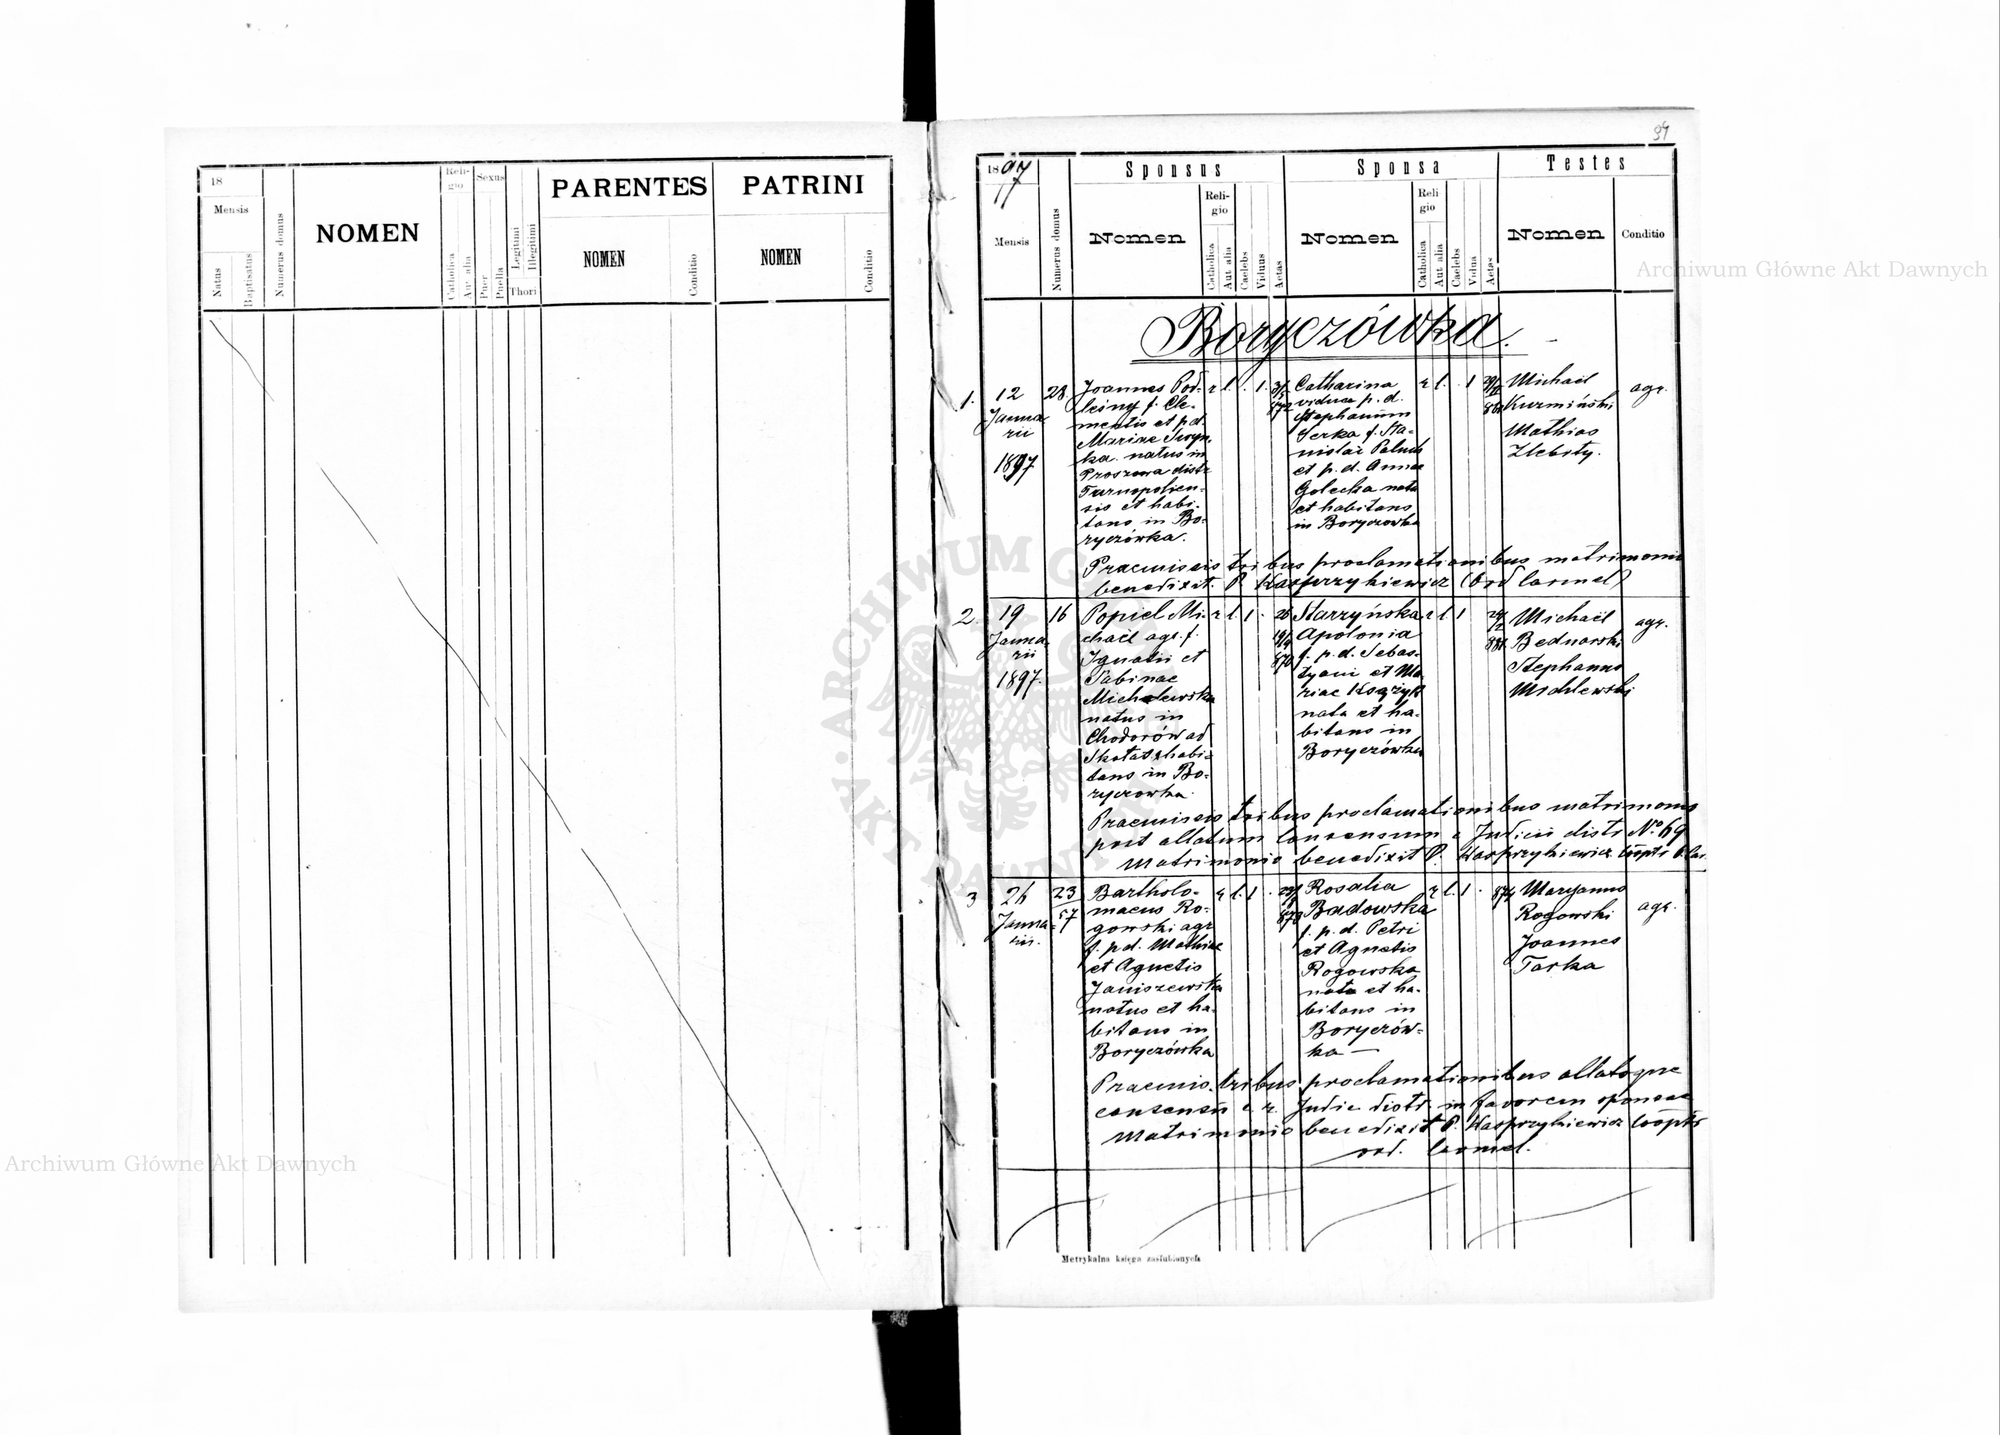 18
Mensis
Natus
Baptisatus
Numerus domus
NOMEN
Reli-
gio
Catholica
Aut alia
Sexus
Puer
Puella
Legitimi
Illegitimi
Thori
PARENTES
NOMEN
Conditio
PATRINI
NOMEN
Conditio
1897
Mensis
Numerus domus
Sponsus
Nomen
Reli-
gio
Catholica
Aut alia
Caelebs
Viduus
Aetas
Sponsa
Nomen
Reli
gio
Catholica
Aut alia
Caelebs
Vidua
Aetas
Testes
Nomen
Conditio
Boryczówka.
1.
12
Janua-
rii
1897
28.
Joannes Pod-
leśny f. Cle-
mentis et p.d.
Mariae
ka natus in
Proszowa distr
Tarnopolien-
sis et habi-
tans in Bo-
ryczówka.
r l. . 1.
Catharina
vidua p. d.
Stephanum
Serka f. Sta-
nislai Paluch
et p. d. Annae
Golecka nata
et habitans
in Boryczowka
r l. . 1
Michaël
Kuzmiński
Mathias
Zlebsty.
agr.
Praemissis tribus proclamationibus matrimonio
benedixit. P. Kasprzykiewicz (Ord Carmel)
2
19
Janua-
rii
1897.
16
Popiel Mi-
chaël agr. f.
Ignatii et
Sabinae
Michalewska
natus in
Chodorów ad
Skałat habi-
tans in Bo-
ryczowka.
r l. 1.
26
19/9
870
Starzyńska
Apolonia
f. p. d. Sebas-
tyani et Ma-
riae Książyk
nata et ha-
bitans in
Boryczówka
r l. 1
Michaël
Bednarski
Stephanus
Michlewski
agr.
Praemissis tribus proclamationibus matrimonio
post allatum consensum c Judicii distr No 69
Matrimonio benedixit P. Kasprzykiewicz Cooptr
3
26
Janua-
rii.
23
57
Bartholo-
maeus Ro-
gowski agr
f. p d. Mathiae
et Agnetis
Janiszewska
natus et ha-
bitans in
Boryczówka
r l. 1
Rosalia
Badowska
f. p. d. Petri
et Agnetis
Rogowska
nata et ha-
bitans in
Boryczów-
ka —
r l. 1.
874
Maryanus
Rogowski
Joannes
Tarka
agr.
Praemis. tribus proclamationibus allatoque
consensu c. r. Judic distr. in favorem sponsae
Matrimonio benedixit P. Kasprzykiewicz Cooptr
ord. Carmel.
Metrykalna księga zaślubionych
Archiwum Główne Akt Dawnych
Archiwum Główne Akt Dawnych
ARCHIWUM GŁÓWNE AKT DAWNYCH